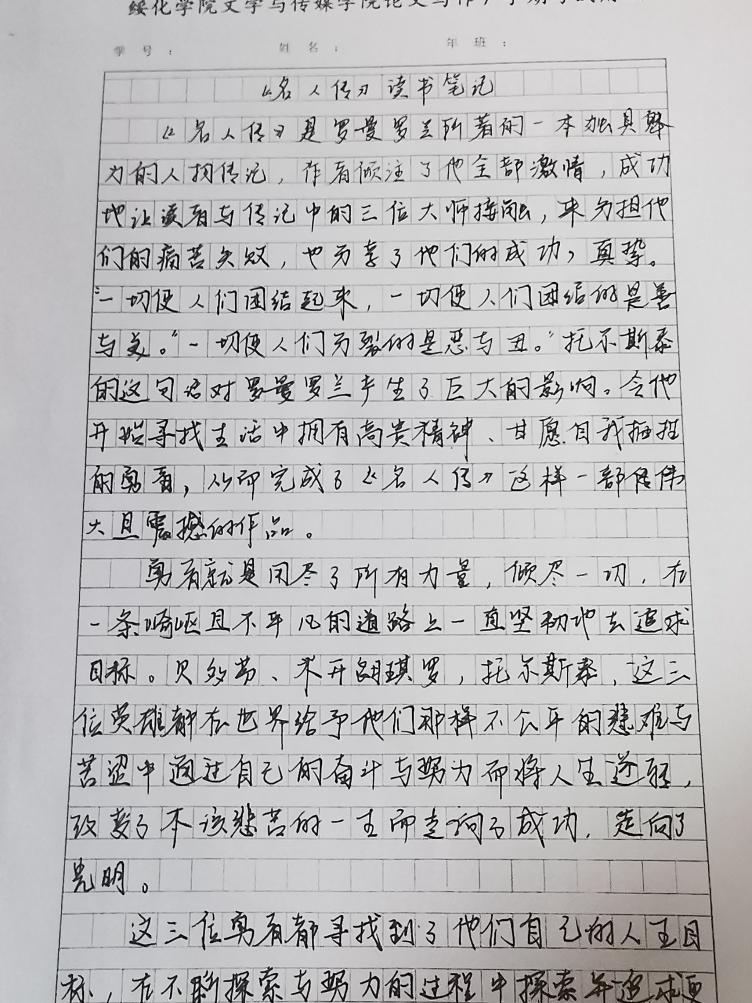 绥化学院文学与传媒学院论文写作
学号： 姓名： 年班：
《名人传》读书笔记
《名人传》是罗曼罗兰所著的一本独具魅
力的人物传记，作者倾注了他全部激情，成功
地让读者与传记中的三位大师接触，来分担他
们的痛苦失败，也分享了他们的成功，真挚。
“一切使人们团结起来，一切使人们团结的是善
与美。”一切使人们分裂的是恶与丑。”托尔斯泰
的这句话对罗曼罗兰产生了巨大的影响。令他
开始寻找生活中拥有高贵精神、甘愿自我牺牲
的勇者，从而完成了《名人传》这样一部伟
大且震撼的作品。
勇者就是用尽了所有力量，倾尽一切，在
一条崎岖且不平凡的道路上一直坚韧地去追求
目标。贝多芬、米开朗琪罗，托尔斯泰，这三
位英雄都在世界给予他们那样不公平的悲难与
苦涩中通过自己的奋斗与努力而将人生逆转，
改变了本该悲苦的一生而走向了成功，走向了
光明。
这三位勇者都寻找到了他们自己的人生目
标，在不断探索与努力的过程中探索并追求更